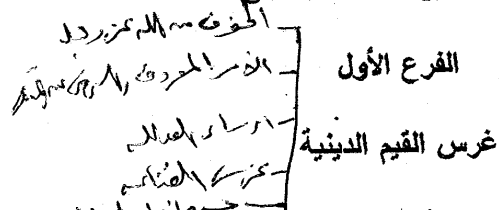 الفرع الأول
غرس القيم الدينية
الخوف من الله عز وجل
الأمر بالمعروف والنهي عن المنكر
إرساء العدالة
غرس القناعة